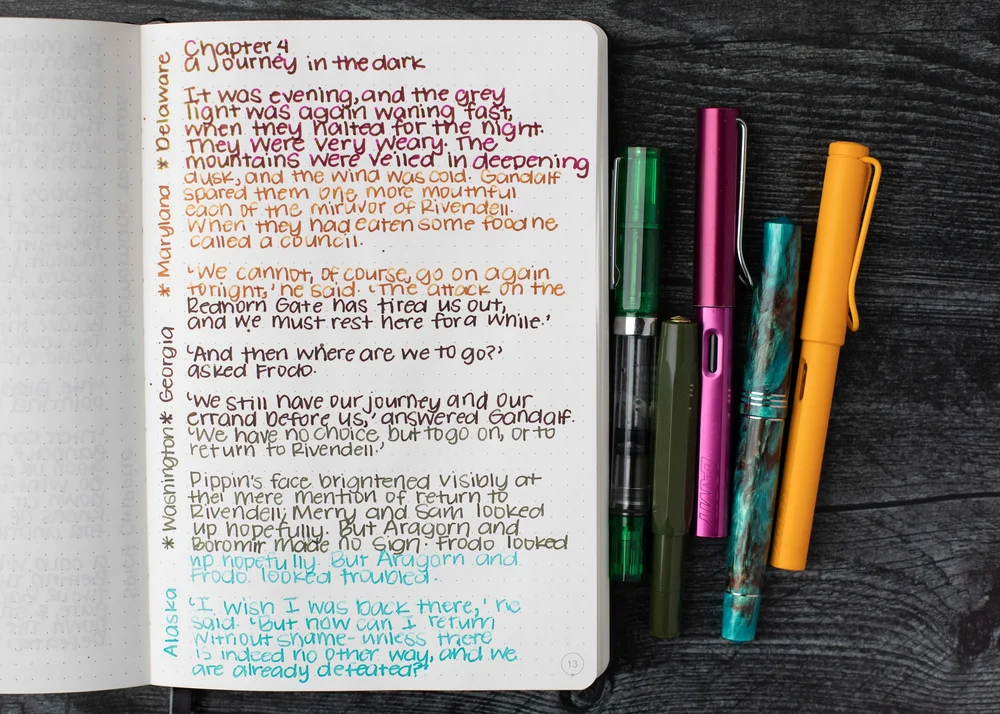 Chapter 4
a Journey in the dark
It was evening, and the grey
light was again waning fast,
when they halted for the night.
They were very weary. The
mountains were veiled in deepening
dusk, and the wind was cold. Gandalf
spared them one more mouthful
each of the miruvor of Rivendell.
When they had eaten some food he
called a council.
'We cannot, of course, go on again
tonight,' he said. 'The attack on the
Redhorn Gate has tired us out,
and we must rest here for a while.'
'And then where are we to go?'
asked Frodo.
'We still have our journey and our
errand before us,' answered Gandalf.
'We have no choice, but to go on, or to
return to Rivendell.'
Pippin's face brightened visibly at
the mere mention of return to
Rivendell; Merry and Sam looked
up hopefully. But Aragorn and
Boromir made no sign. Frodo looked
up hopefully. But Aragorn and
Frodo. looked troubled.
'I wish I was back there,' he
said. 'But how can I return
without shame- unless there
is indeed no other way, and we
are already defeated?'
* Delaware
* Maryland
* Georgia
* Washington
Alaska
13
LAMY